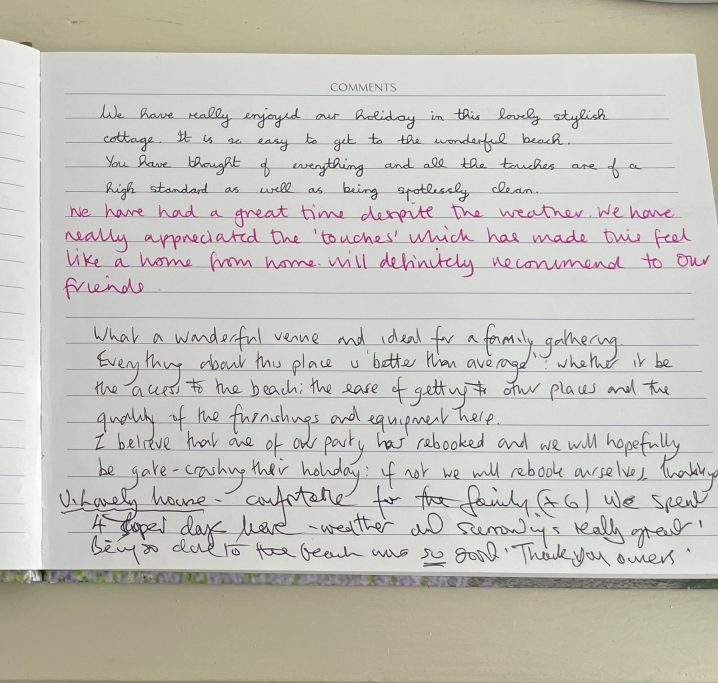 COMMENTS
We have really enjoyed our holiday in this lovely stylish
cottage. It is so easy to get to the wonderful beach.
You have thought of everything and all the touches are of a
high standard as well as being spotlessly clean.
We have had a great time despite the weather. We have
really appreciated the 'touches' which has made this feel
like a home from home. Will definitely recommend to our
friends.
What a wonderful venue and ideal for a family gathering.
Everything about this place is 'better than average': whether it be
the access to the beach; the ease of getting to other places and the
quality of the furnishings and equipment here.
I believe that one of our party has rebooked and we will hopefully
be gate-crashing their holiday: if not we will rebook ourselves, Thank you
V. Lovely house - comfortable for the family (+ 6) We spent
4 super days here - weather and surroundings really great!
Being so close to the beach was so good! Thank you owners.